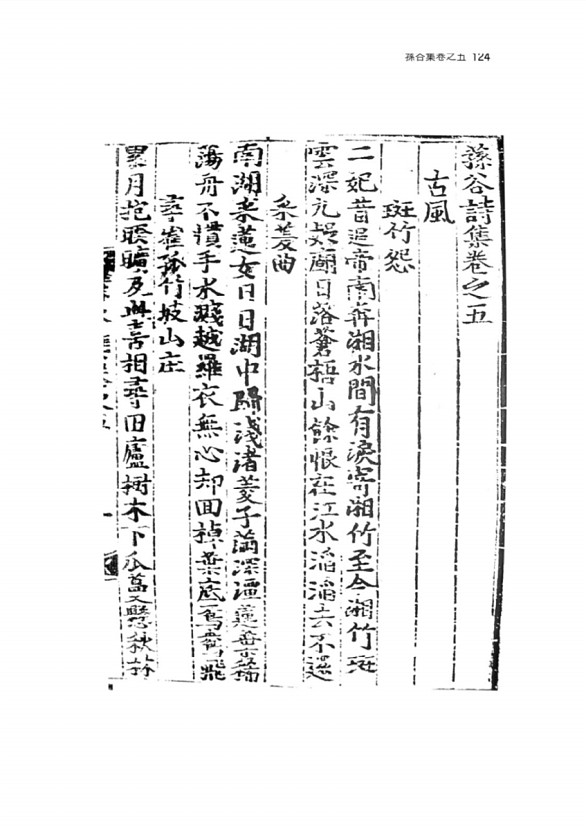 孫谷集卷之五 124
蓀谷詩集卷之五
古風
斑竹怨
二妃昔追帝南奔湘水間有淚寄湘竹至今湘竹斑
雲深九疑廟日落蒼梧山餘恨在江水滔滔去不還
采菱曲
南湖采蓮女日日湖中歸淺渚菱子滿深潭蓮葉稀
蕩舟不慣手水濺越羅衣無心却回棹葉底鴛鴦飛
尋崔孤竹坡山庄
累月抱暌曠及此喜相尋田廬樹木下瓜蔓懸秋